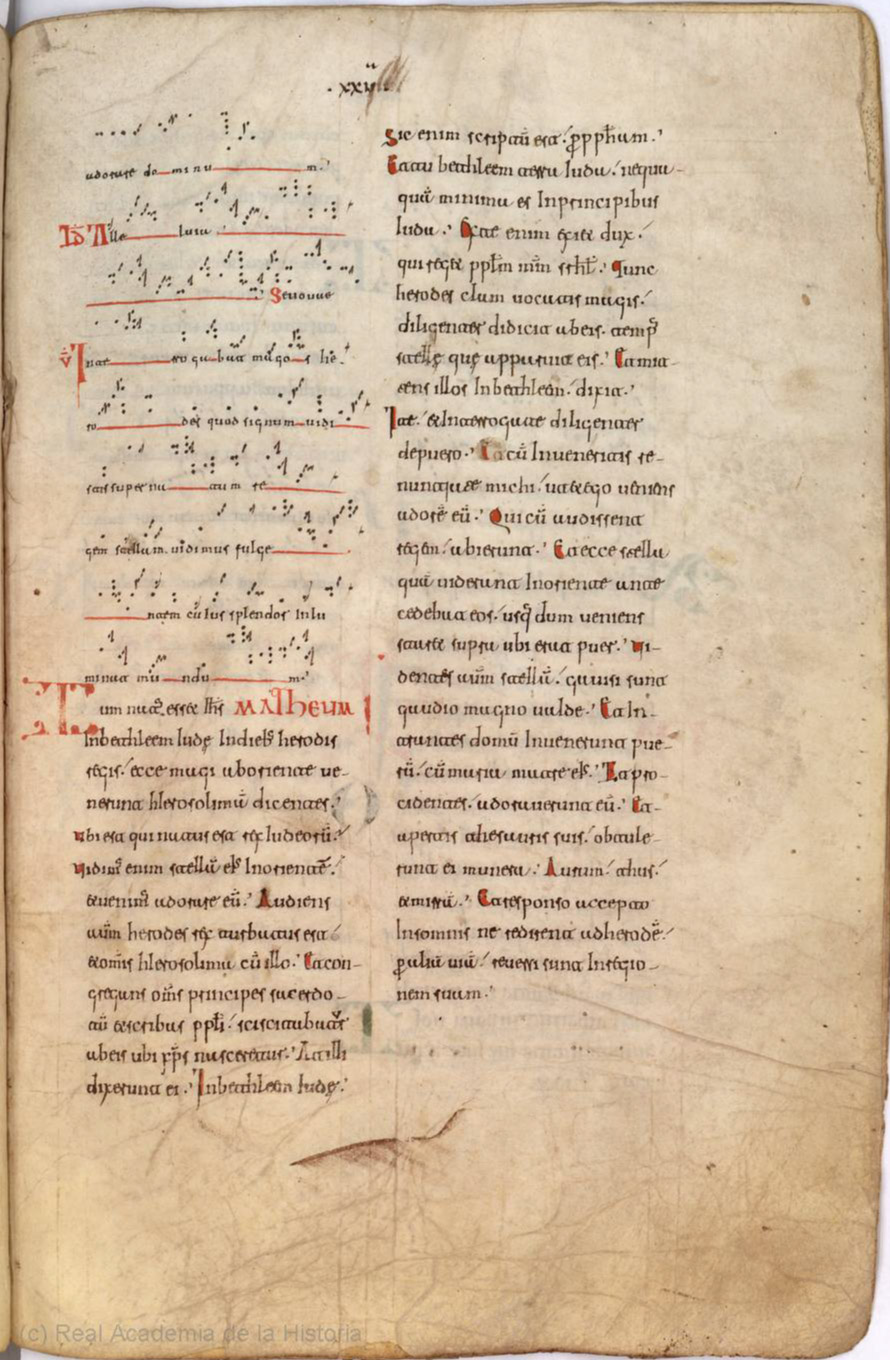 . xxvii.
adorare do mi nu m.
Alle luia
Seuouae
V Inte rro ga bat ma go s he
ro des quod signum uidi
stis super na tu m re
gem stellam uidimus fulge
ntem cuius splendor inlu
minat mu ndu m.
Cum natus esset ihs MATHEUM
Inbethleem iude Indieb herodis
regis ecce magi aboriente ue-
nerunt hierosolimā dicentes
ubi est qui natus est rex iudeorū
uidim enim stellā ei Inoriente
et uenim adorare eū. Audiens
autm herodes rex turbatus est
et omis hierosolima cū illo. Et con-
gregans oms principes sacerdo-
tū et scribas ppli sciscitabatur
ab eis ubi xps nasceretur. At illi
dixerunt ei. Inbethleem iude
Sic enim scriptū est pprophetam.
Et tu bethleem terra Iuda nequa-
quā minima es Inprincipibus
Iuda. Ex te enim exiet dux
qui reget pplm mm srhl. Tunc
herodes clam uocatis magis
diligenter didicit ab eis temp
stelle que apparuit eis. Et mit-
tens illos Inbethleem dixit
Ite et Interrogate diligenter
depuero. Et cū Inueneritis re-
nuntiate michi ut et ego ueniens
adorē eū. Qui cū audissent
regem abierunt. Et ecce stella
quā uiderunt Inoriente ante
cedebat eos usq dum ueniens
staret supra ubi erat puer. Ui-
dentes autm stellā gauisi sunt
gaudio magno ualde. Et In-
trantes domū Inuenerunt pue-
rū cū maria matre ei. Et pro-
cidentes adorauerunt eū. Et a-
pertis thesauris suis obtule-
runt ei munera. Aurum thus
et mirrā. Et responso accepto
Insomnis ne redirent adherodē
paliā uiā reuersi sunt Inregio-
nem suam.
(c) Real Academia de la Historia